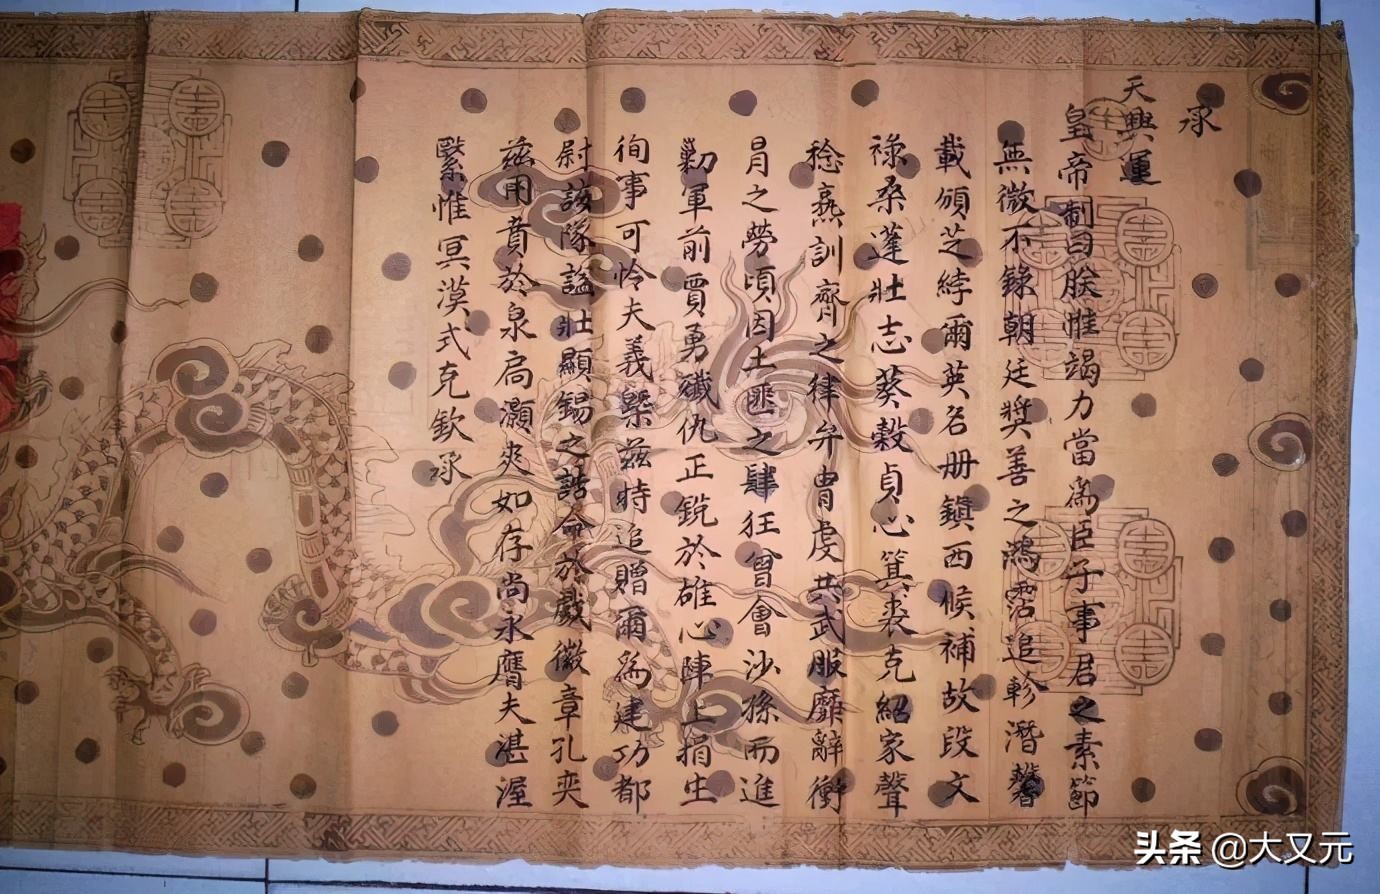 承
天興運
皇帝制曰朕惟竭力當爲臣子事君之素節
無微不錄朝廷奬善之鴻霑追軫潛馨
載頒芝綍爾英名册鎮西候補故段文
祿桑蓬壯志葵穀貞心箕裘克紹家聲
稔熹訓齊之律弁胄虔共武服靡辭衝
冒之勞頃因土匪之肆狂曾會沙孫而進
勦軍前賈勇殲仇正銳於雄心陣上捐生
徇事可怜夫義槩茲特追贈爾爲建功都
尉該隊謚壯顯錫之誥命於戲徽章孔奕
茲用賁於泉扃灝爽如存尚永膺夫湛渥
繄惟冥漠式克欽承
头条 @大又元